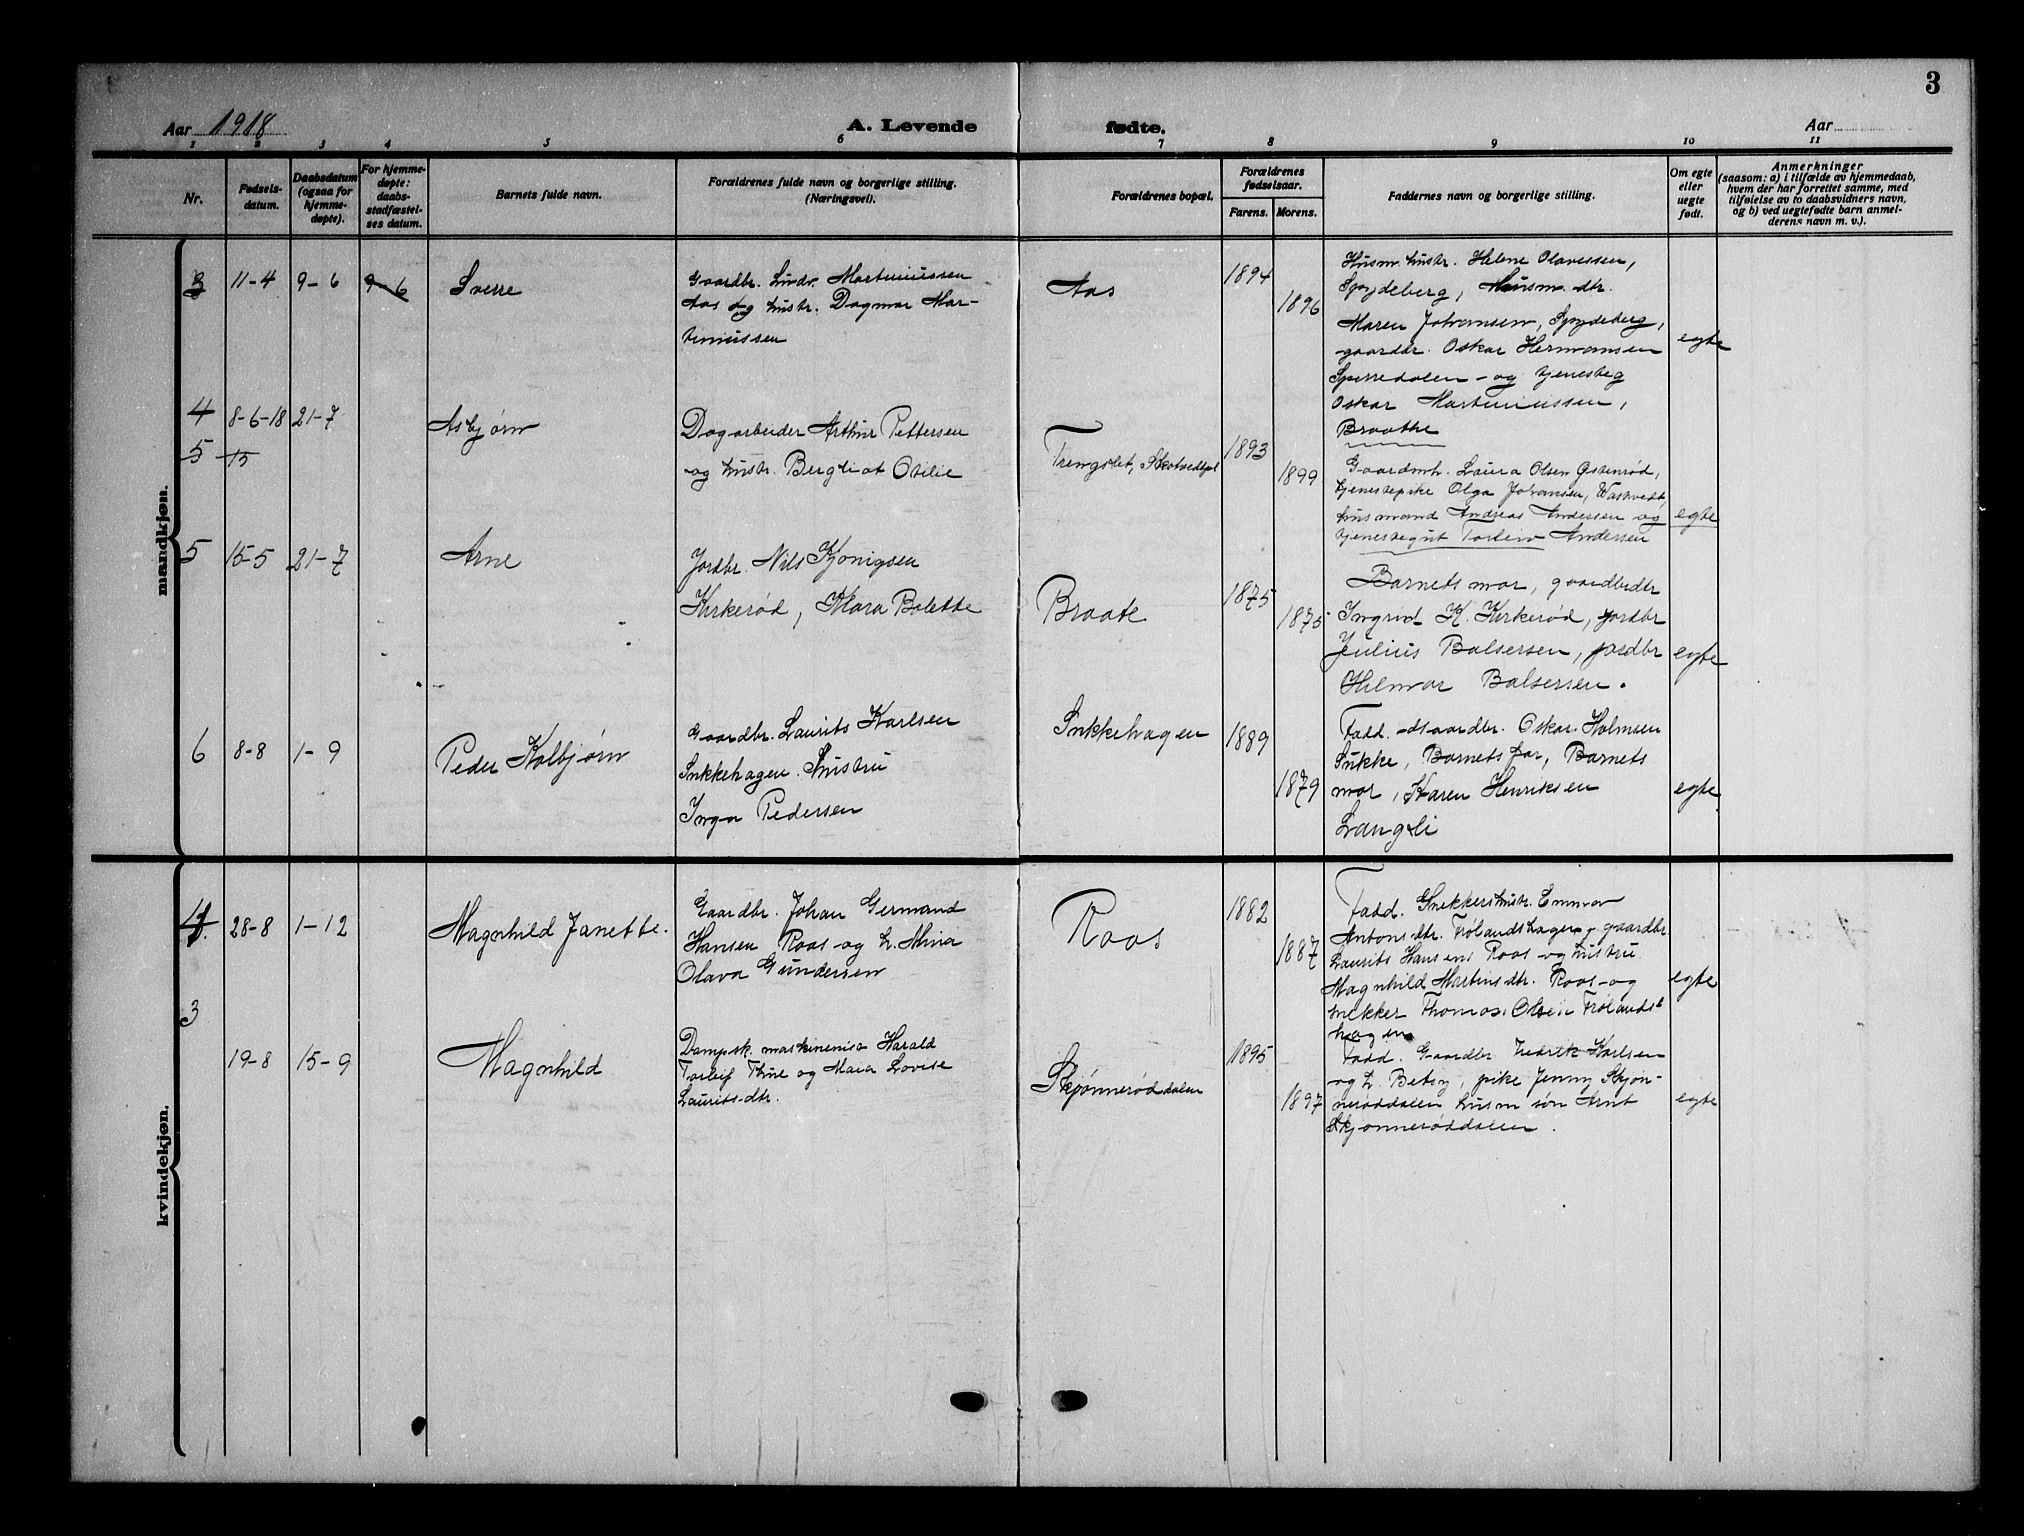 3
Aar 1918
A. Levende
fødte.
Aar
1 2 3 4 5 6 7 8 9 10 11
Nr.
Fødsels-
datum.
Daabsdatum
(ogsaa for
hjemme-
døpte).
For hjemme-
døpte:
daabs-
stadfæstel-
ses datum.
Barnets fulde navn.
Forældrenes fulde navn og borgerlige stilling.
(Næringsvei).
Forældrenes bopæl.
Forældrenes
fødselsaar.
Farens.
Morens.
Faddernes navn og borgerlige stilling.
Om egte
eller
uegte
født.
Anmerkninger
(saasom: a) i tilfælde av hjemmedaab,
hvem der har forrettet samme, med
tilføielse av to daabsvidners navn,
og b) ved uegtefødte barn anmel-
derens navn m. v.).
mandkjøn.
3 11-4 9-6 9-6 Sverre
Gaardbr. Ludv. Martinussen
Aas og hustr. Dagmar Mar-
tinussen
Aas
1894
1896
Husm. hustr. Helene Olavesen,
Spydeberg, Husm. dtr.
Maren Johansen, Spydeberg,
gaardbr. Oskar Hermansen
Sperredalen - og tjenesteg
Oskar Martinussen,
Braathe
egte
4 8-6-18 21-7 Asbjørn
5 15
Dagarbeider Arthur Pettersen
og hustr. Bergliot Otilie
Trengslet,
1893
1899
Gaardmh. Laura Olsen
tjenestepike Olga Johansen,
husmand Andreas Andersen og
tjenestegut Torleiv Andersen
egte
5 15-5 21-7 Arne
Jordbr. Nils Kjønigsen
Kirkerød, Mara Bolette
Braate
1875
1875
Barnets mor, gaardbrdtr
Ingrid K. Kirkerød, jordbr
Julius Balsersen, jordbr
Hilmar Balsersen.
egte
6 8-8 1-9 Peder Kolbjørn
Gaardbr. Laurits Karlsen
Sukkehagen. Hustru
Inga Pedersen
Sukkehagen
1889
1879
Fadd. Gaardbr. Oskar Holmsen
Sukke, Barnets far, Barnets
mor, Karen Henriksen
Langli
egte
kvindekjøn.
4 28-8 1-12 Magnhild Janette.
Gaardbr. Johan Germand
Hansen Roos og h. Mina
Olava Gundersen
Roos
1882
1887
Fadd. Snekkershustr. Emma
Antonsdtr. Frølandshagen, gaardbr
Laurits Hansen Roos og hustru
Magnhild Martinsdtr. Roos og
snekker Thomas Olsen Frølands-
hagen
egte
3
19-8 15-9 Magnhild
Dampsk. maskinenist Harald
Torleif Thue og Maia Lovise
Lauritsdtr.
Skjønnerøddalen
1895
1897
Fadd. Gaardbr. Fredrik Karlsen
og h. Betsy, pike Jenny Skjøn-
nerøddalen husm søn Arnt
Skjønnerøddalen.
egte